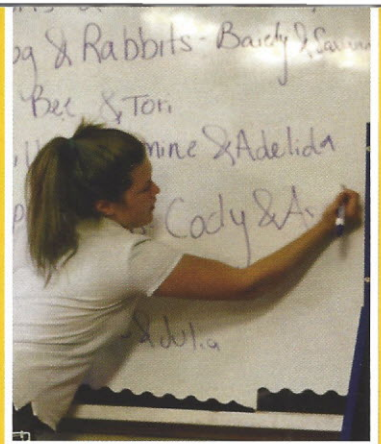 & Rabbits - Baidy &
Bee & Tori
mine & Adelida
Cody & A
& Julia